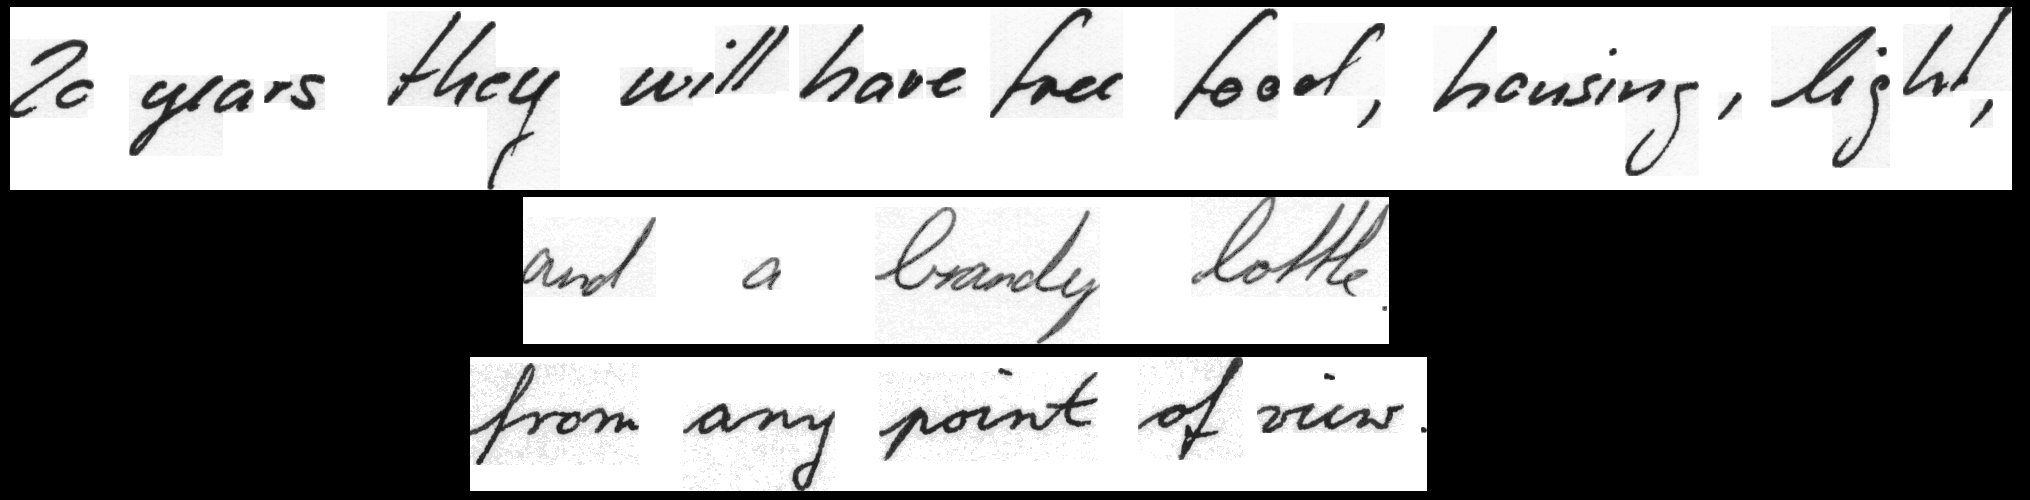 20 years they will have free food, housing, light,
and a brandy bottle.
from any point of view.